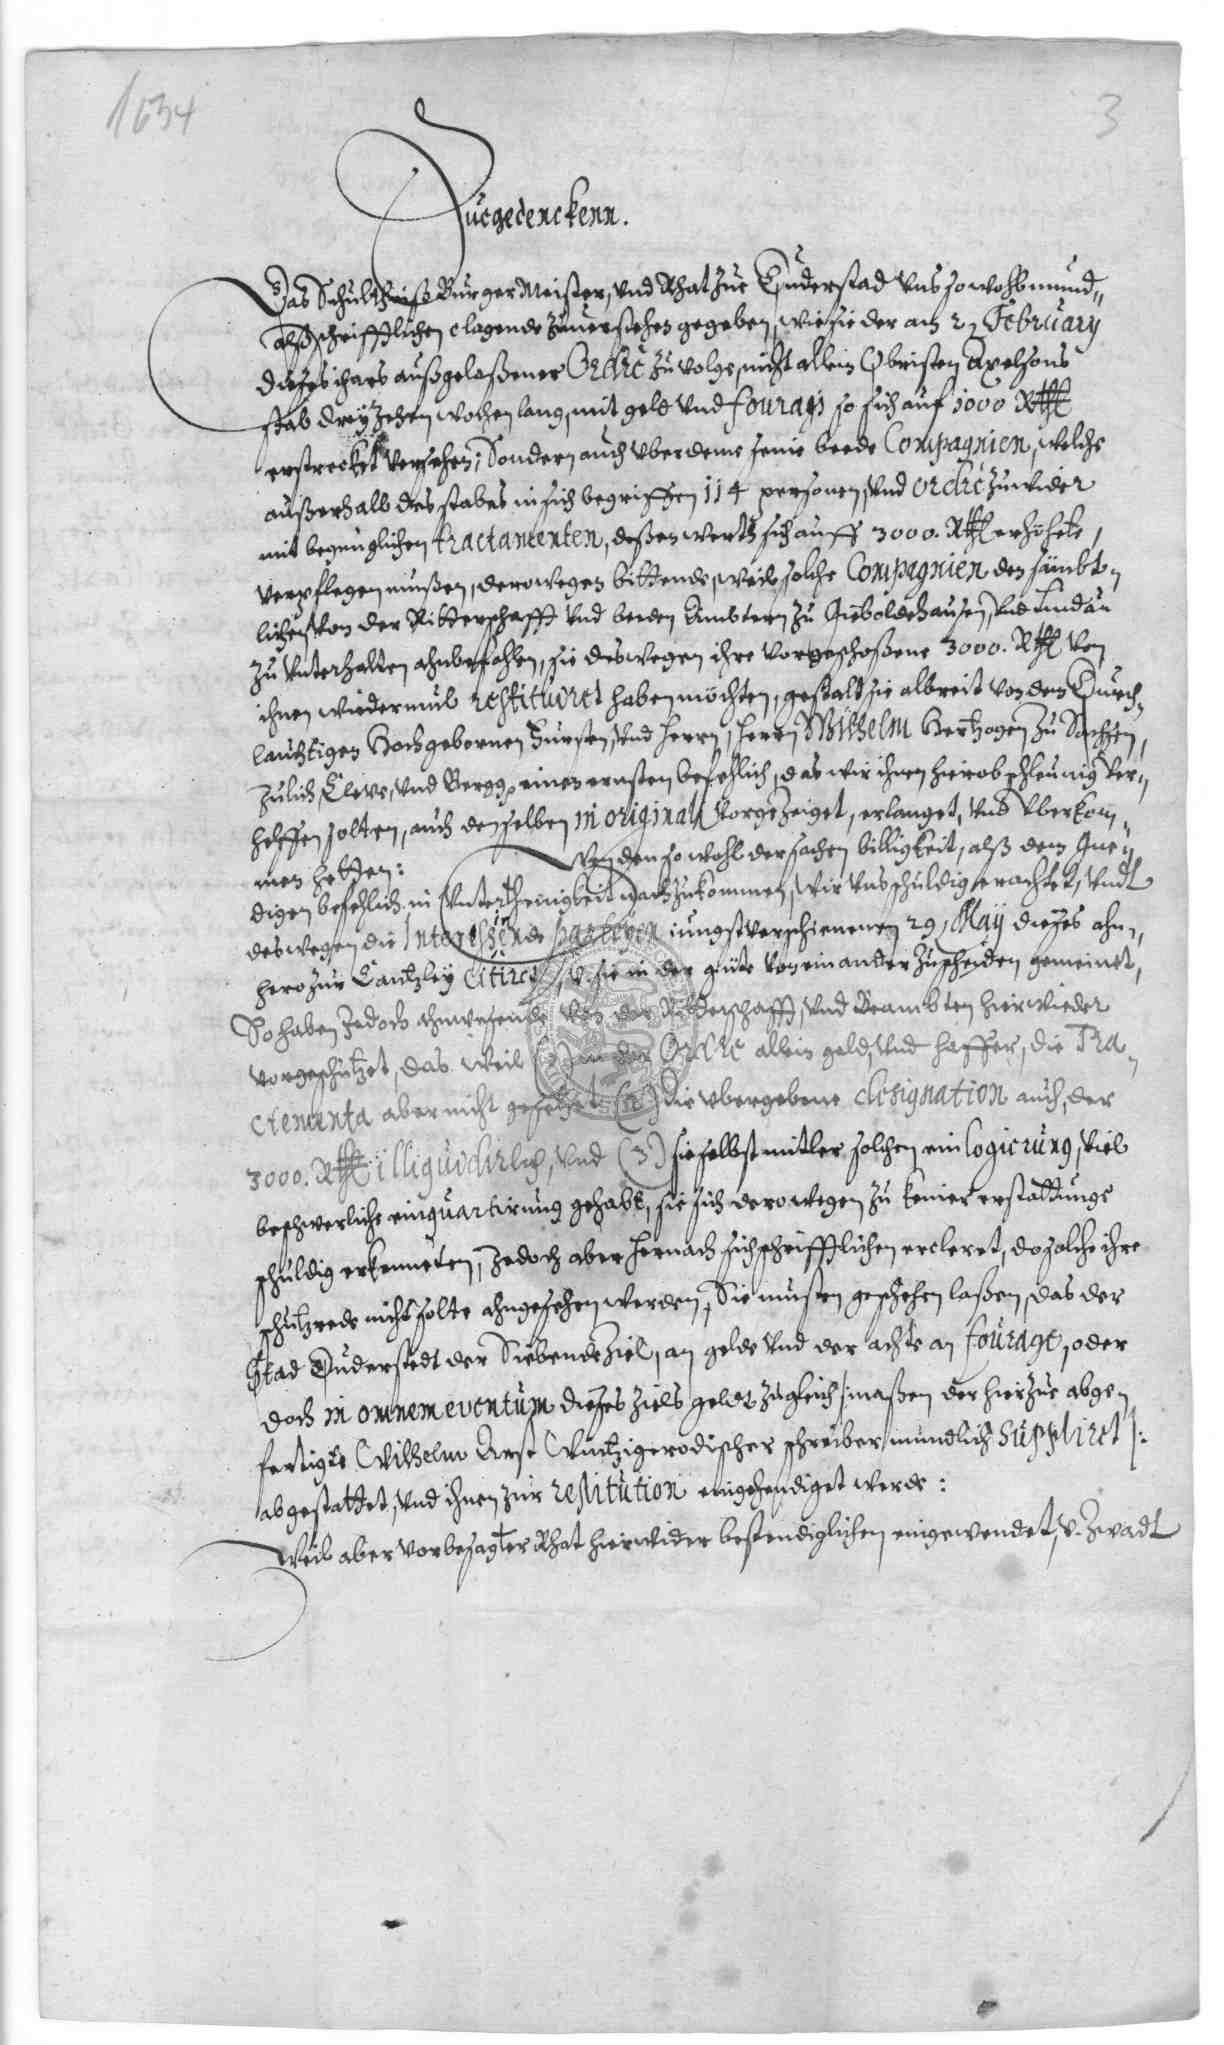 1634
3
Zuegedenckenn.
Das Schultheiß BürgerMeister, und Rhat zue Duderstad uns so wohl mund-
alß schrifftlichen clagende zuverstehen gegeben, wie sie der am 21 February
dieses ihars außgelaßener Ordre zu volge, nicht allein Obristen Axelsons
stab dreyzehen wochen lang, mit geld und fourage so sich auf 1000 Rthl
erstrecket versehen; Sondern auch uberdeme seine beede Compagnien, welche
außerhalb des stabes in sich begriffen 114 personen, und ordre zuwider
mit begnuglichen tractamenten, deßen werth sich auff 3000. Rthl erhöhete,
verpflegen mußen, derowegen bittende, weil solche Compagnien den sämbt-
lichen von der Ritterschafft und beeden Ambtern zu Gieboldehausen, und Lindau
zu unterhalten ahnbefohlen, sie deswegen ihre vorgeschoßene 3000. Rthl von
ihnen wiederumb restituiret haben möchten, gestalt sie albereit von dem Durch-
lauchtigen Hochgebornen Fursten, und Herrn, Herrn Wilhelm Hertzogen zu Sachsen,
Julich, Cleve, und Bergk einen ernsten befehlich, das wir ihnen hierob schleunig ver-
helffen solten, auch denselben in originali vorgezeiget, erlanget, und uberkom-
men hetten:
Wan den so wohl der sachen billigkeit, alß dem Gne-
digen befehlich in Unterthenigkeit nachzukommen, wir uns schuldig erachtet, undt
deswegen die Interessirende parteyen jungst verschienenen 29 May dieses ahn-
hero zur Cantzley citiret, u. sie in der güte von einander zuscheiden gemeinet,
So haben Jedoch ahnwesende von der Ritterschafft, und Beambten hierwieder
vorgeschützet, das weil (1) in der Ordre allein geld, und haffer, die Tra-
ctementa aber nicht gesetzet (2) die ubergebene designation auch, der
3000. Rthl illiquidirlich, und (3) sie selbst mitler solchen einlogierung, viel
beschwerliche einquartirung gehabt, sie sich derowegen zu keiner erstattunge
schuldig erkenneten, Jedoch aber hernach sich schrifftlichen ercleret, do solche ihre
schutzrede nicht solte ahngesehen werden, Sie musten geschehen laßen, das der
Stad Duderstedt der Siebende Ziel, an gelde und der achte an fourage, oder
doch in omnem eventum dieses ziels geldt zugleich /: maßen der hierzue abge-
fertigte Wilhelm Arse Wintzigerodischer schreiber mündlich suppliret :/
abgestattet, und ihnen zur restitution eingehendiget werde:
Weil aber vorbesagter Rhat hierwider bestendiglichen eingewendet, u. zwadt